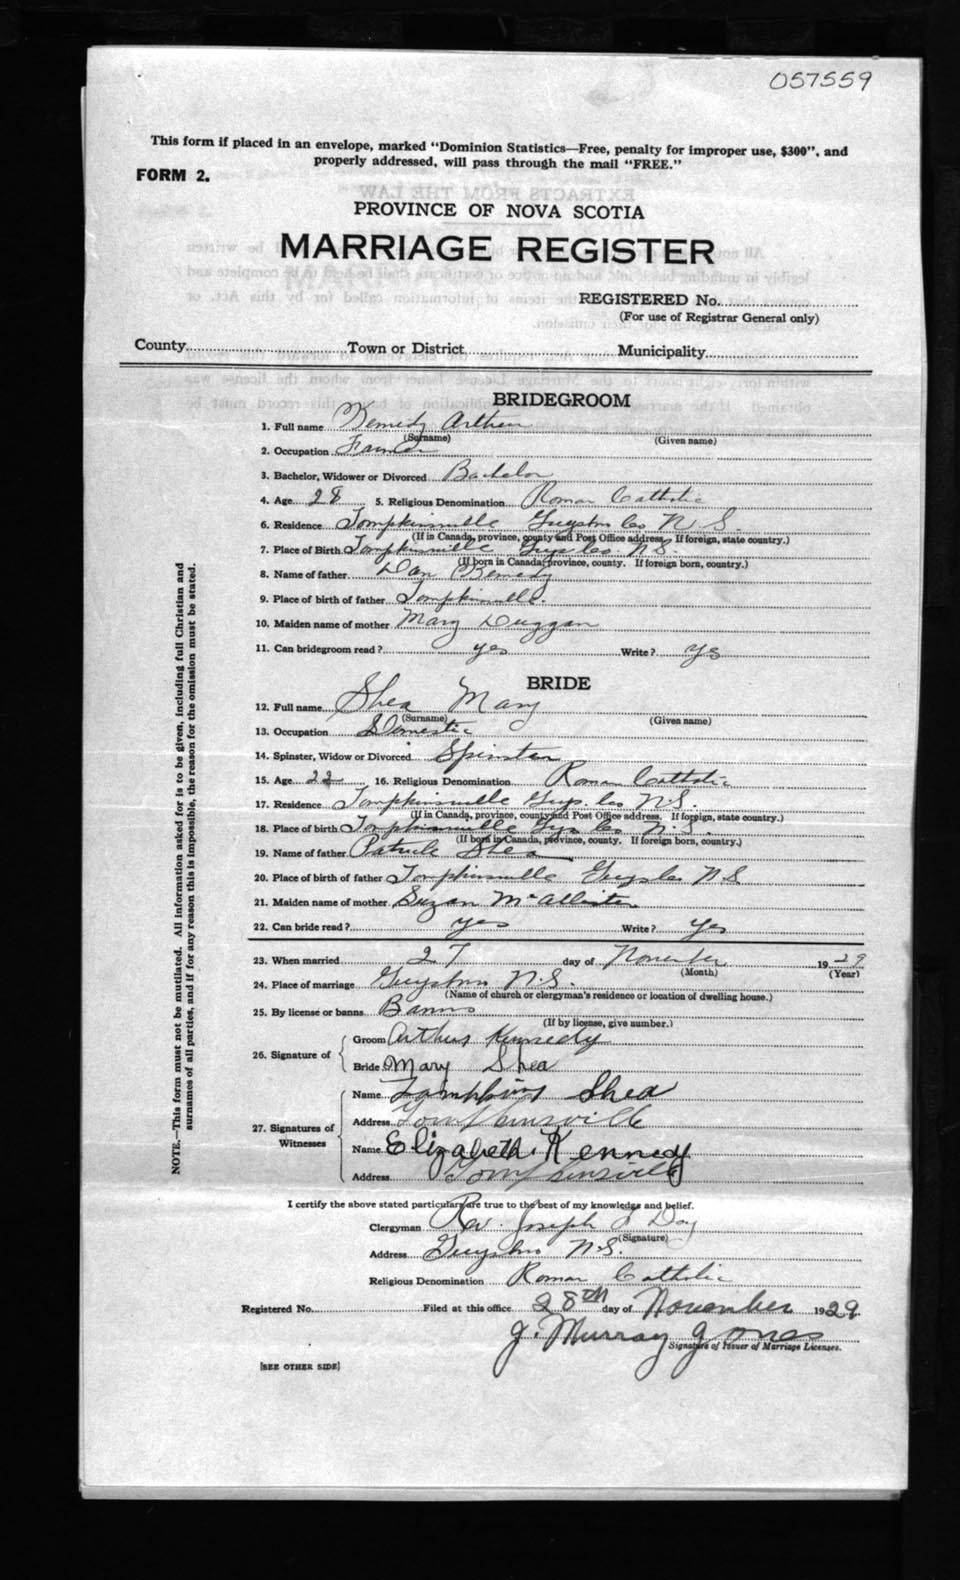 057559
This form if placed in an envelope, marked "Dominion Statistics—Free, penalty for improper use, $300", and
properly addressed, will pass through the mail "FREE."
FORM 2.
PROVINCE OF NOVA SCOTIA
MARRIAGE REGISTER
REGISTERED No.
(For use of Registrar General only)
County Town or District Municipality
BRIDEGROOM
1. Full name Kennedy Arthur
(Surname) (Given name)
2. Occupation Farmer
3. Bachelor, Widower or Divorced Bachelor
4. Age 28 5. Religious Denomination Roman Catholic
6. Residence Tompkinsville Guysboro Co N.S.
(If in Canada, province, county and Post Office address. If foreign, state country.)
7. Place of Birth Tompkinsville Guys Co N.S.
(If born in Canada, province, county. If foreign born, country.)
8. Name of father Dan Kennedy
9. Place of birth of father Tompkinsville.
10. Maiden name of mother Mary Duggan
11. Can bridegroom read? yes Write? yes
BRIDE
12. Full name Shea Mary
(Surname) (Given name)
13. Occupation Domestic
14. Spinster, Widow or Divorced Spinster
15. Age 22 16. Religious Denomination Roman Catholic
17. Residence Tompkinsville Guys. Co N.S.
(If in Canada, province, county and Post Office address. If foreign, state country.)
18. Place of birth Tompkinsville Guys Co N.S.
(If born in Canada, province, county. If foreign born, country.)
19. Name of father Patrick Shea
20. Place of birth of father Tompkinsville Guys Co N.S
21. Maiden name of mother Suzan McAllister
22. Can bride read? yes Write? yes
23. When married 27 day of November 1929
(Month) (Year)
24. Place of marriage Guysboro N.S.
(Name of church or clergyman's residence or location of dwelling house.)
25. By license or banns Banns
(If by license, give number.)
26. Signature of Groom Arthur Kennedy
Bride Mary Shea
27. Signatures of Witnesses Name Tompkins Shea
Address Tompkinsville
Name Elizabeth Kennedy
Address Tompkinsville
I certify the above stated particulars are true to the best of my knowledge and belief.
Clergyman Rev. Joseph J Day
(Signature)
Address Guysboro N.S.
Religious Denomination Roman Catholic
Registered No. Filed at this office 28th day of November 1929
J. Murray Jones
Signature of Issuer of Marriage Licenses.
[SEE OTHER SIDE]
NOTE.—This form must not be mutilated. All information asked for is to be given, including full Christian and
surnames of all parties, and if for any reason this is impossible, the reason for the omission must be stated.